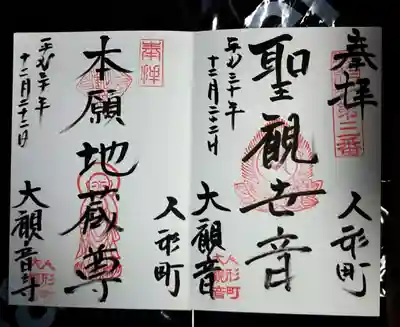 奉拝
聖観世音
平成三十年
十二月二十二日
人形町
大観音
人形町
大観音
奉拝
本願地蔵尊
平成三十年
十二月二十二日
人形町
大観音寺